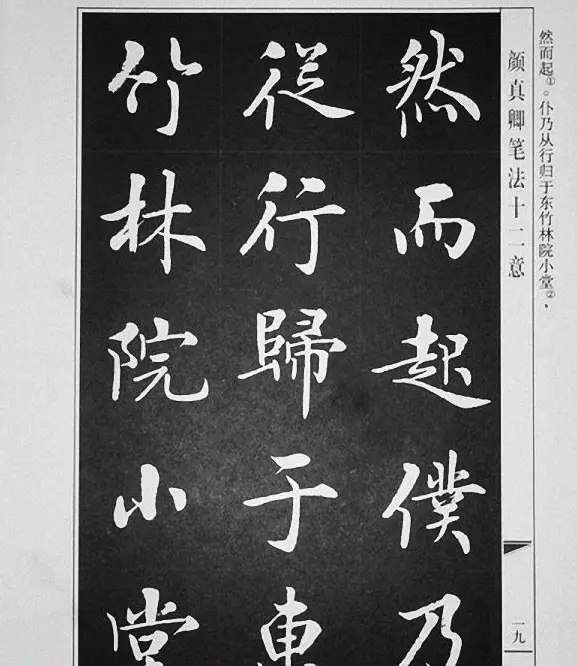 然而起①。仆乃从行归于东竹林院小堂②，
颜真卿笔法十二意
然而起僕乃
從行歸于東
竹林院小堂
一九